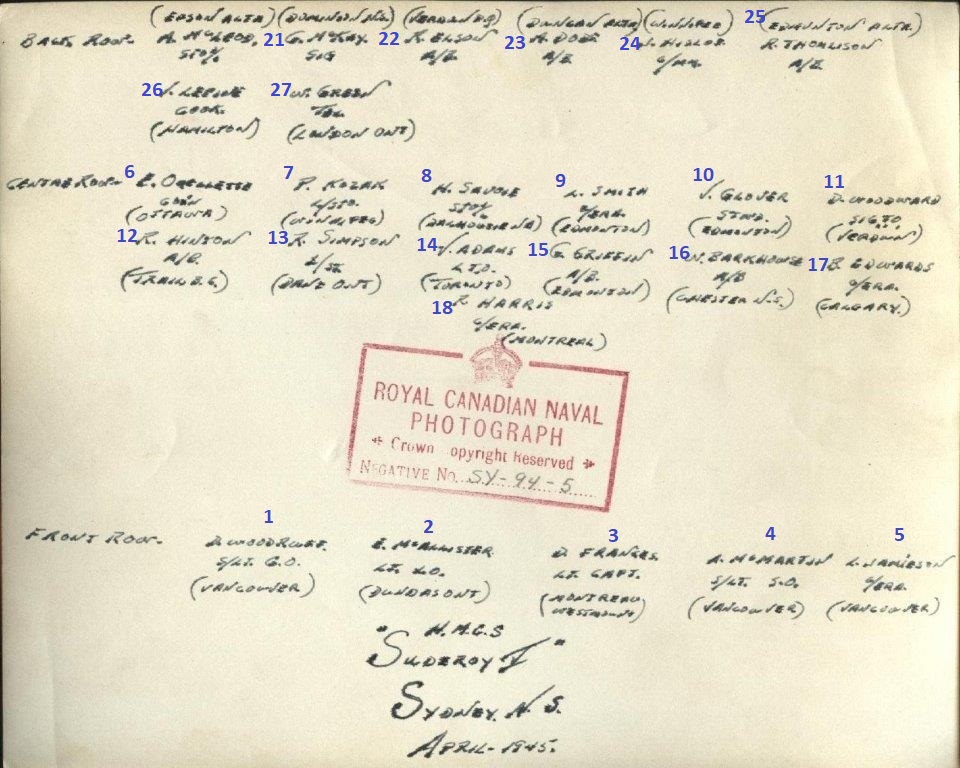 (EDSON ALTA) (DOMINION N.S.) (VERDUN P.Q) (DUNCAN ALTA) (WINNIPEG) 25 (EDMONTON ALTA.)
BACK ROW- A. McLEOD, 21 G. McKAY. 22 R. ELSON 23 A. DOBB 24 J. HISLOP R. THOMLISON
STO/1 SIG A/B A/B A/B
26 V. LEPINE 27 W. GREEN
COOK. TEL
(HAMILTON) (LONDON ONT)
6 7 8 9 10 11
CENTRE ROW- E. OUELLETTE P. KOZAK H. SAVOIE L. SMITH V. GLOVER D. WOODWARD
L/STO. STO/1 ERA. STWD.
(OTTAWA) (WINNIPEG) (DALHOUSIE N.B) (EDMONTON) (EDMONTON) (VERDUN)
12 R. HINTON 13 R. SIMPSON 14 V. ADAMS 15 G. GRIFFIN 16 W. BARKHOUSE 17 B. EDWARDS
A/B. A/B. A/B ERA.
(TRAIL B.C.) (ONT) (TORONTO) (EDMONTON) (CHESTER N.S.) (CALGARY.)
18 HARRIS
ERA.
(MONTREAL)
ROYAL CANADIAN NAVAL
PHOTOGRAPH
Crown opyright Reserved
NEGATIVE No. SY-94-5
1 2 3 4 5
FRONT ROW- D. WOODRUFF. E. McALLISTER D. FRANCIS. A. McMARTIN L. JAMIESON
S/LT. G.O. LT. X.O. LT. CAPT. S/LT. S.O. ERA.
(VANCOUVER) (DUNDAS ONT) (MONTREAL (VANCOUVER) (VANCOUVER)
WESTMOUNT)
" H.M.C.S
SUDEROY V "
SYDNEY. N. S.
APRIL- 1945.